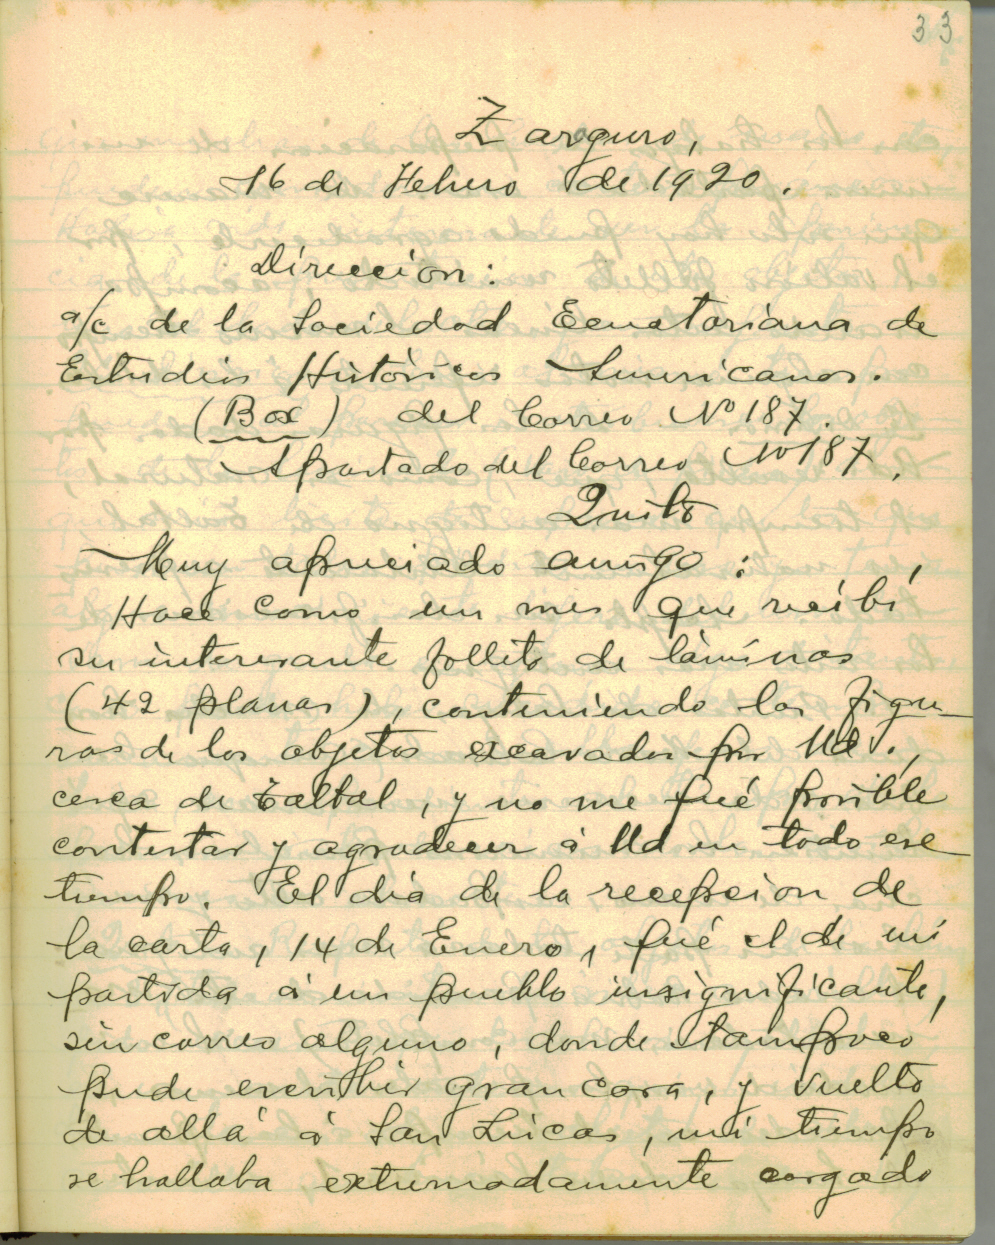 33
Zarguro,
16 de Febrero de 1920.
Direccion:
a/c de la Sociedad Ecuatoriana de
Estudios Históricos Americanos.
(Box) del Correo Nº 187.
Apartado del Correo Nº 187.
Quito
Muy apreciado amigo:
Hace como un mes que recibí
su interesante folleto de láminas
(42 planas), conteniendo las figu-
ras de los objetos excavados por Ud.,
cerca de Taltal, y no me fué posible
contestar y agradecer á Ud en todo ese
tiempo. El dia de la recepcion de
la carta, 14 de Enero, fué el de mi
partida á un pueblo insignificante,
sin correo alguno, donde tampoco
pude escribir gran cosa, y vuelto
de allá á San Lucas, mi tiempo
se hallaba extremadamente cargado